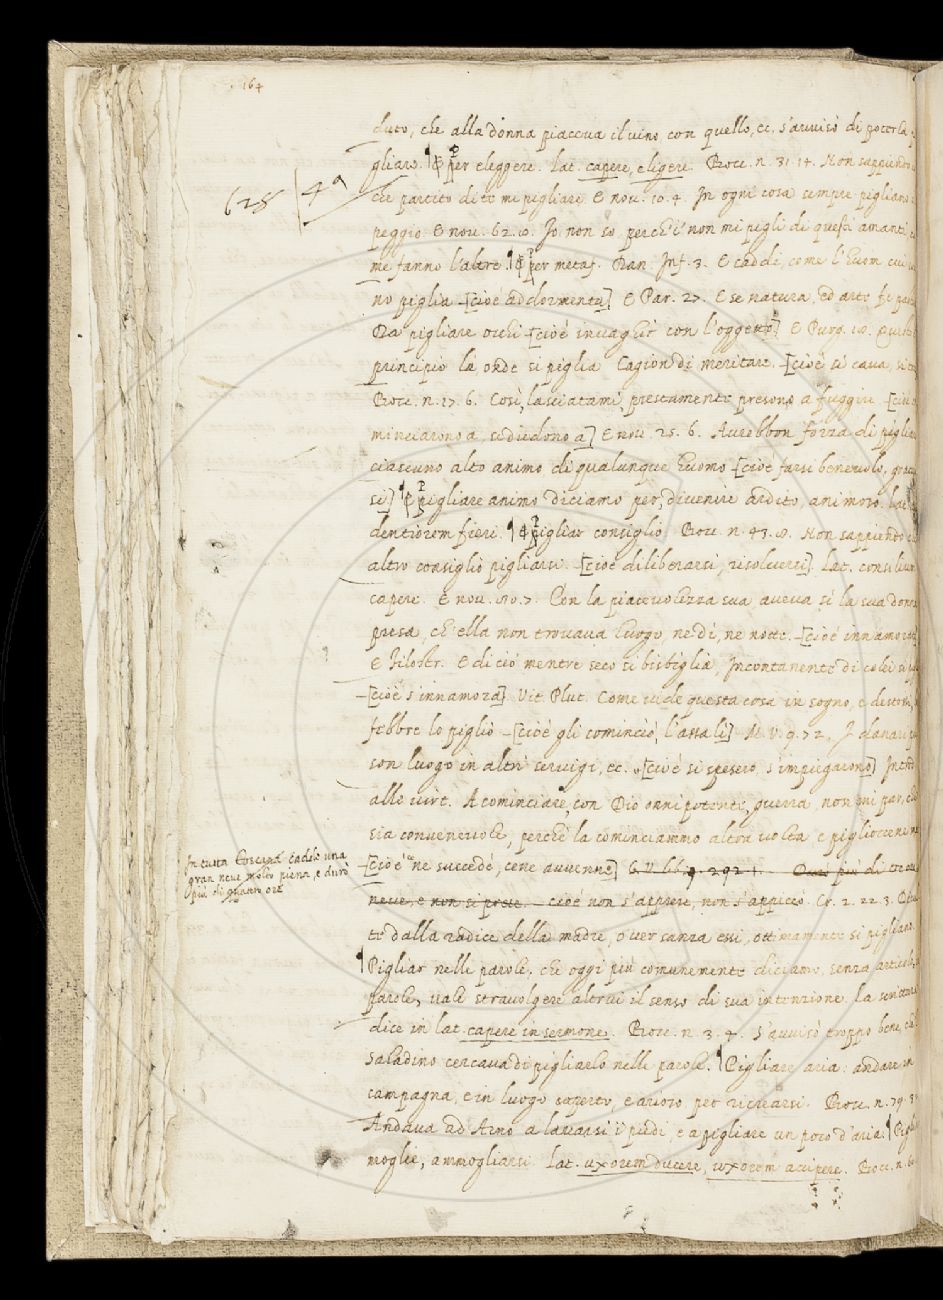 164
duto, che alla donna piaceua il uino con quello, ec. s'auuisò di poterla
gliare. ¶ P per eleggere. Lat. capere, eligere. Bocc. n. 31. 14. Non sappiendo
628 4ª
che partito di te mi pigliare. E nou. 10. 4. In ogni cosa sempre pigliano
peggio. E nou. 62. Io non so, perch'i' non mi pigli di questi amanti
me fanno l'altre. ¶ P per metaf. Dan. Inf. 3. E caddi, come l'huom cui
no piglia [cioè addormenta] E Par. 27. E se natura, od arte fe
Da pigliare occhi [cioè inuaghir con l'oggetto] E Purg. 18.
principio là, onde si piglia Cagion di meritare. [cioè si caua,
Bocc. n. 17. 6. Così, lasciatami, prestamente presono a fuggire [
minciarono a, si diedono a] E nou. 25. 6. Aurebbon forza di
ciascuno alto animo di qualunque huomo [cioè farsi beneuolo,
si] ¶ P pigliare animo diciamo per, diuenire ardito, animoso.
dentiorem fieri. ¶ P pigliar consiglio Bocc. n. 43. Non sappiendo
altro consiglio pigliarsi. [cioè diliberarsi, risoluersi]. Lat. consilium
capere. E nou. 80. 7. Con la piaceuolezza sua aueua sì la sua donna
presa, ch'ella non trouaua luogo, nè dì, nè notte. [cioè
E Filostr. E di ciò mentre seco si bisbiglia, Incontanente di colei si
[cioè s'innamora] Vit. Plut. Come uide questa cosa in sogno, e
febbre lo pigliò [cioè gli cominciò, l'assalì] M. V. 9. 72. I danari
son luogo in altri seruigi, ec. [cioè si spesero, s'impiegarono]
alle uirt. A cominciare, con Dio onnipotente, guerra, non mi par,
sia conueneuole, perchè la cominciammo altra uolta e
In tutta Toscana cadde una
gran neue molto piena, e durò
più di quattro ore
[cioè ce ne succedè, ce ne auuenne] G. V. lib. 9. 292. 1. più di tre
neue, e non si prese. cioè non s'apprese, non s'appiccò. Cr. 2. 22. 3.
te dalla radice della madre, o uer sanza essi, ottimamente si pigliano.
¶ Pigliar nelle parole, che oggi più comunemente diciamo, senza
parole, uale strauolgere altrui il senso di sua intenzione. La
dice in lat. capere in sermone. Bocc. n. 3. 4. S'auuisò troppo bene,
Saladino cercaua di pigliarlo nelle parole. ¶ Pigliare aria: andare in
campagna, e in luogo aperto, e arioso per ricrearsi. Bocc. n. 79.
Andaua ad Arno a lauarsi i piedi, e a pigliare un poco d'aria. ¶
moglie, ammogliarsi. Lat. uxorem ducere, uxorem accipere. Bocc. n.